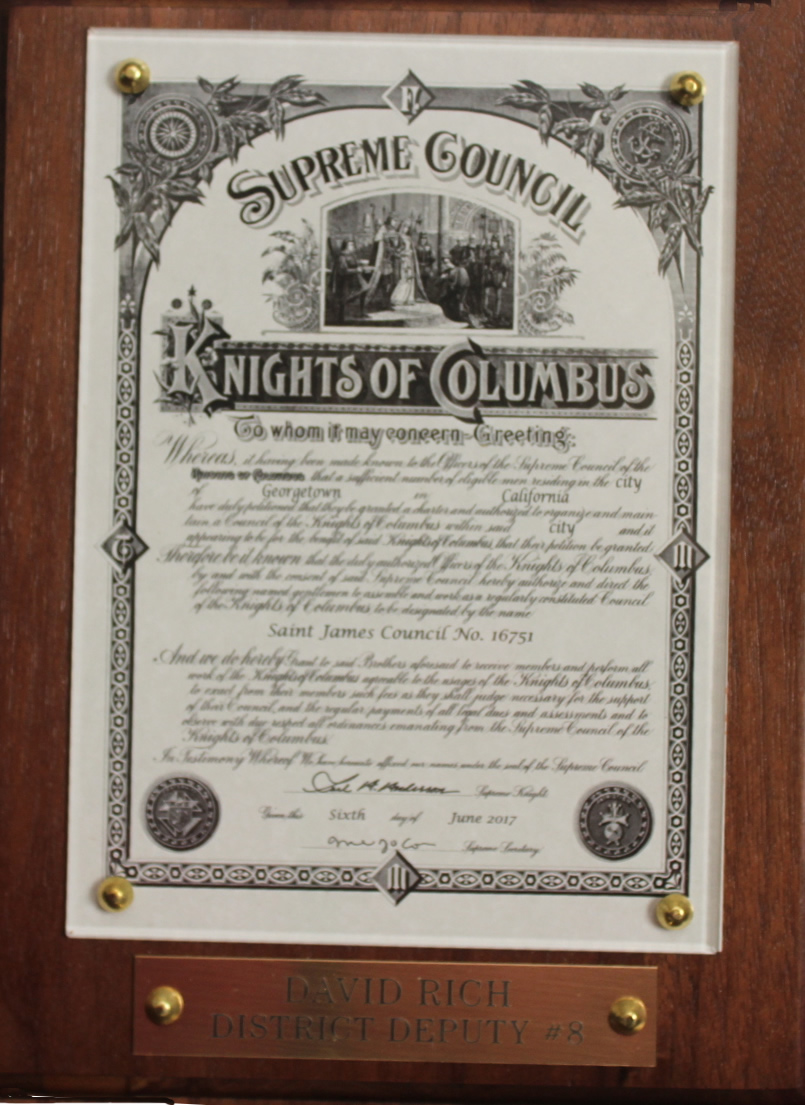 F.
SUPREME COUNCIL
KNIGHTS OF COLUMBUS
To whom it may concern - Greeting:
Whereas, it having been made known to the Officers of the Supreme Council of the
that a sufficient number of eligible men residing in the city
of Georgetown in California
have duly petitioned that they be granted a charter and authorized to organize and main
tain a Council of the Knights of Columbus within said city and it
appearing to be for the benefit of said Knights of Columbus, that their petition be granted
Therefore be it known that the duly authorized Officers of the Knights of Columbus,
by and with the consent of said Supreme Council hereby authorize and direct the
following named gentlemen to assemble and work as a regularly constituted Council
of the Knights of Columbus to be designated by the name
Saint James Council No. 16751
And we do hereby Grant to said Brothers aforesaid to receive members and perform all
work of the Knights of Columbus agreeable to the usages of the Knights of Columbus,
to exact from their members such fees as they shall judge necessary for the support
of their Council, and the regular payments of all legal dues and assessments and to
observe with due respect all ordinances emanating from the Supreme Council of the
Knights of Columbus.
In Testimony Whereof We have hereunto affixed our names under the seal of the Supreme Council
Supreme Knight
Given this Sixth day of June 2017
Supreme Secretary
DAVID RICH
DISTRICT DEPUTY #8